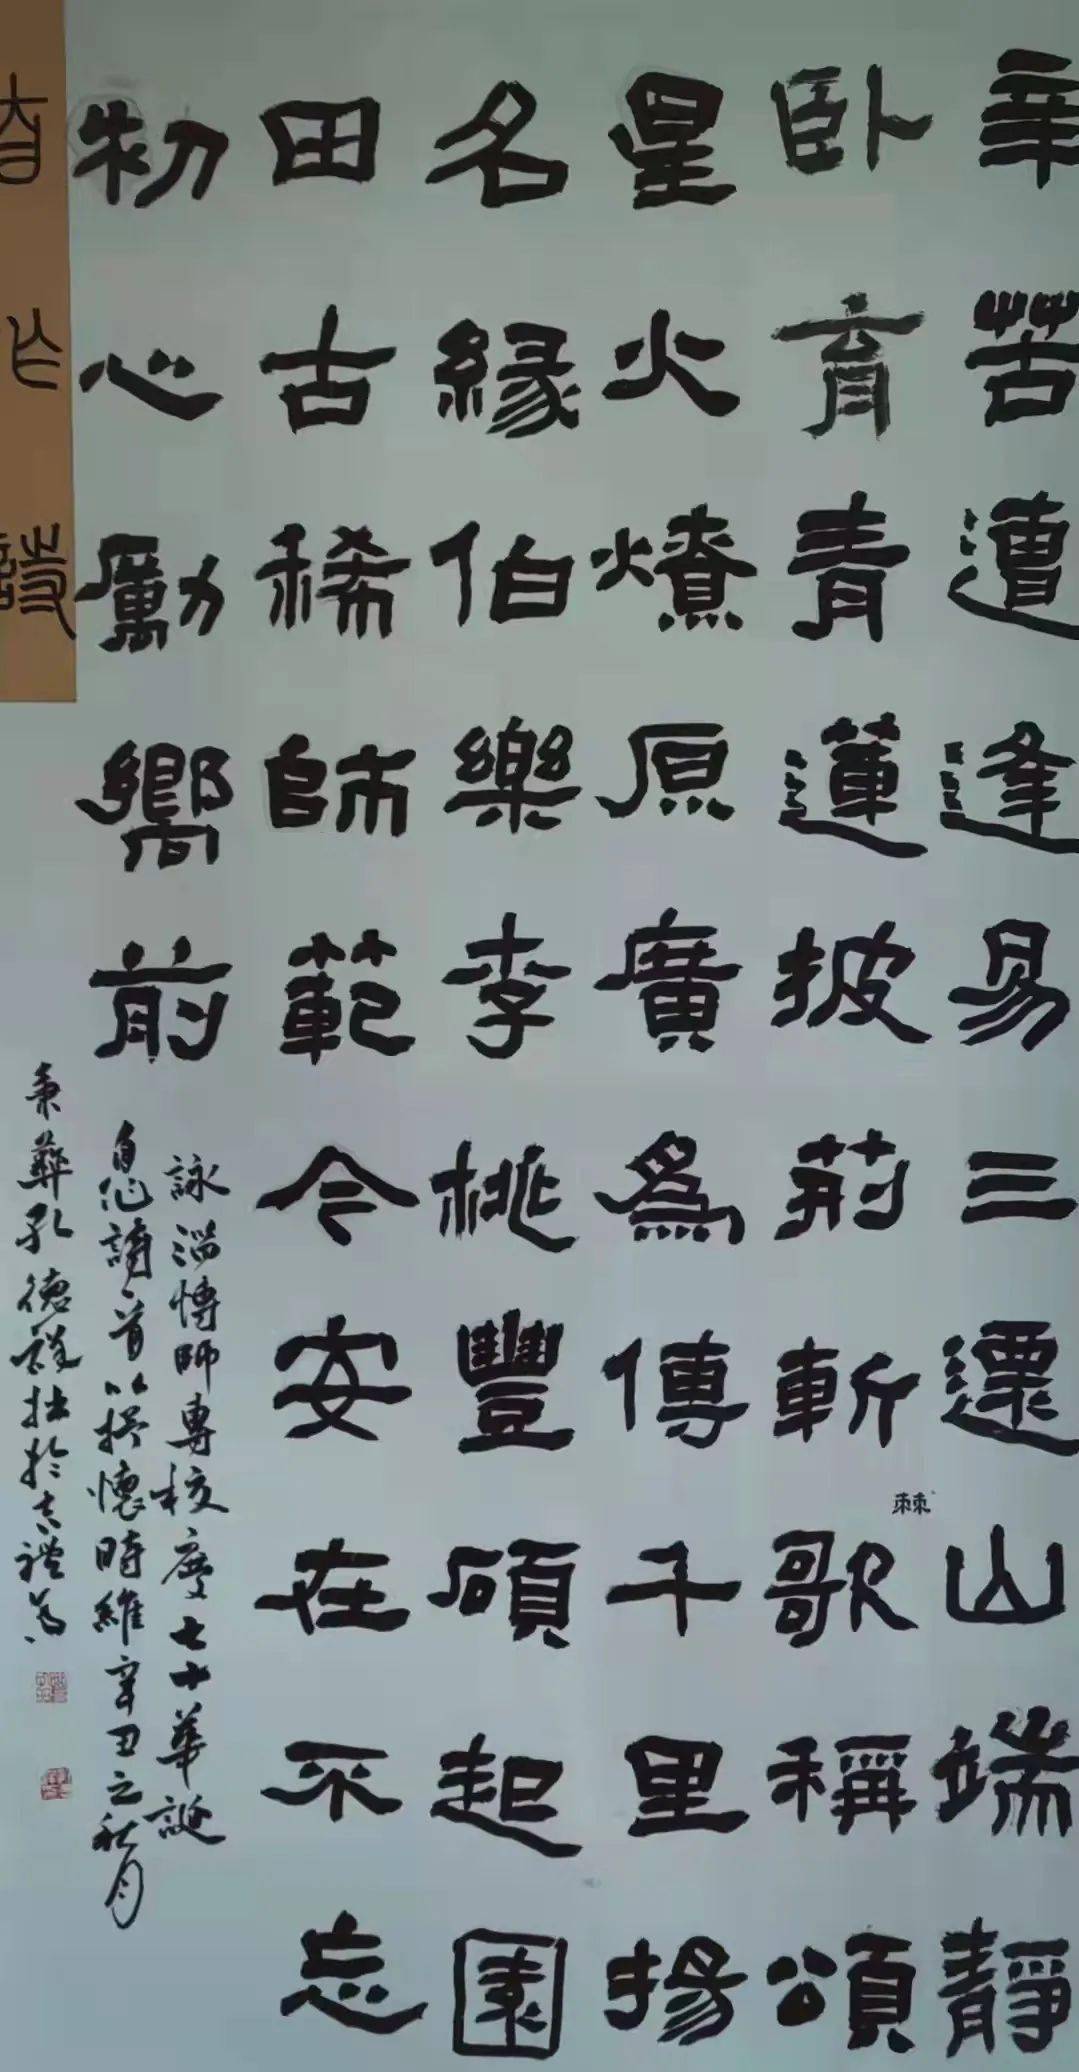 辛苦遭逢易三遷山端靜
臥育青蓮披荊斬棘歌稱頌
星火燎原廣爲傳千里揚
名緣伯樂李桃豐碩起園
田古稀師範今安在不忘
初心勵嚮前
詠淄博師專校慶七十華誕
自作詩一首以抒懷時維辛丑之秋月
秉彝孔德祥拙於
自作詩